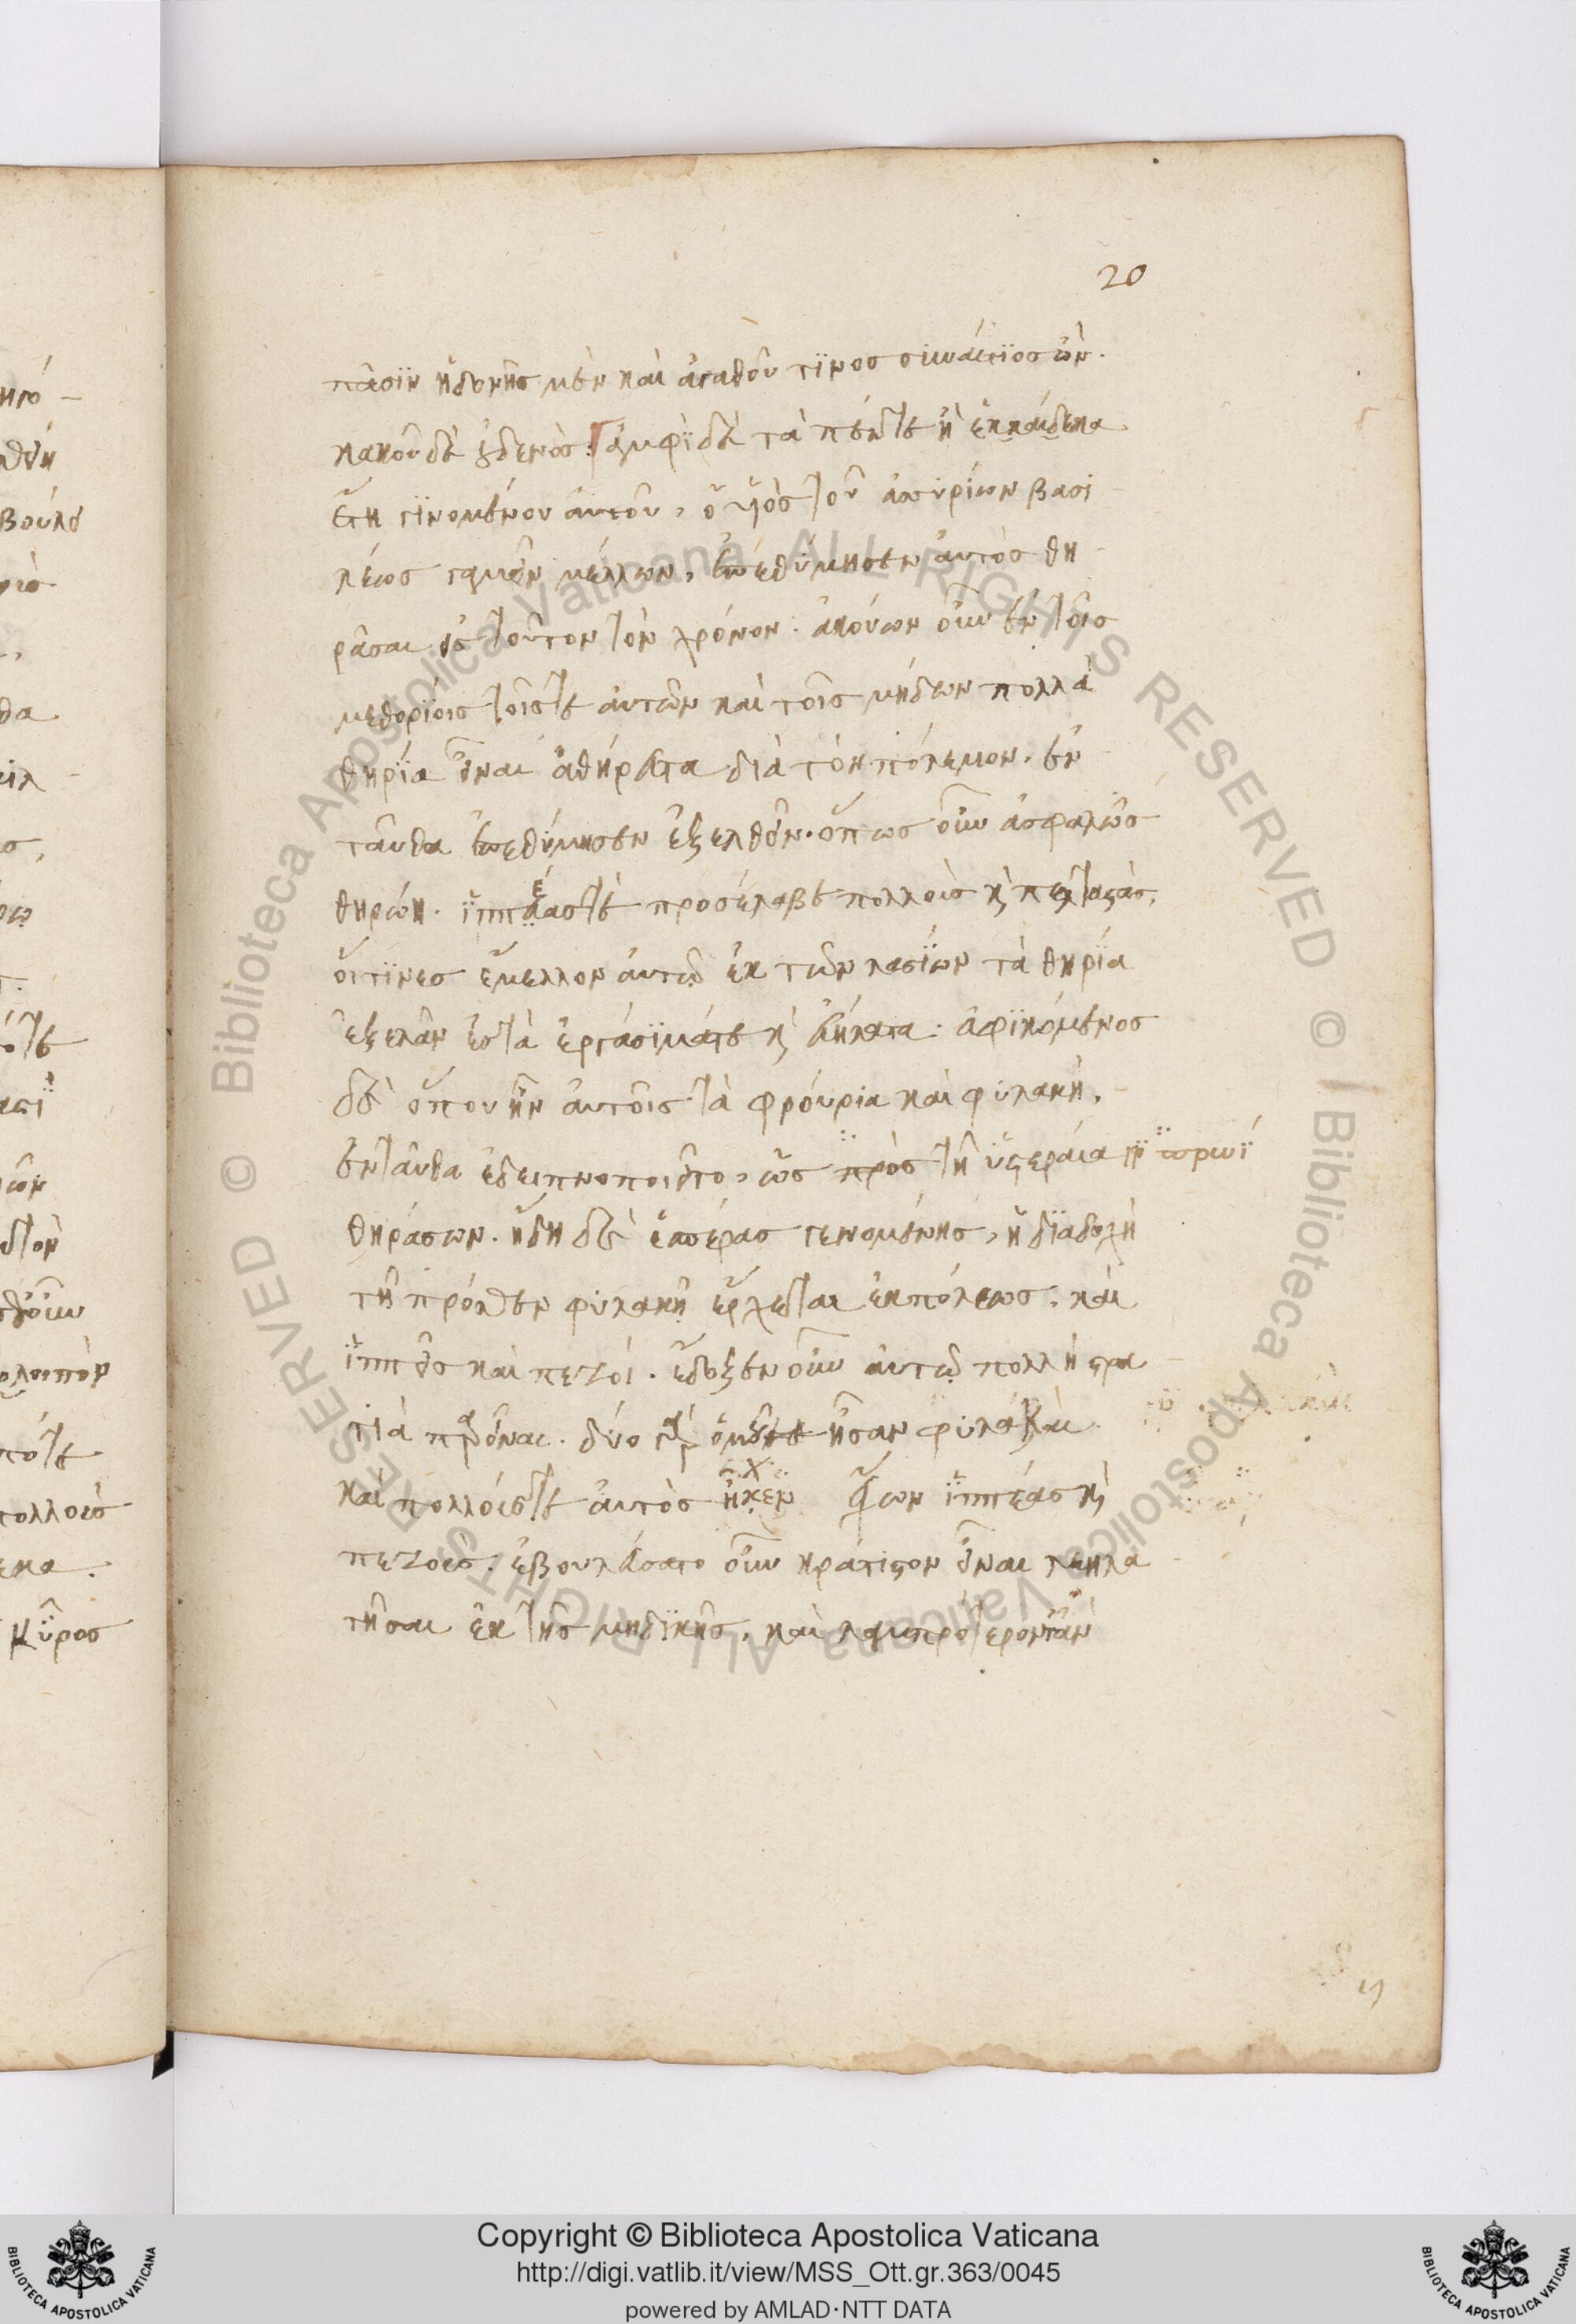 20
πᾶσιν ἡδονῆς μὲν καὶ ἀγαθοῦ τινος συναίτιος ὢν.
κακοῦ δὲ οὐδενός: ἀμφὶ δὲ τὰ πέντε ἢ ἑκκαίδεκα
ἔτη γινομένου αὐτοῦ, ὁ υἱὸς τοῦ ἀσσυρίων βασι
λέως γαμεῖν μέλλων, ἐπεθύμησεν αὐτὸς θη
ρᾶσαι εἰς τοῦτον τὸν χρόνον. ἀκούων οὖν ἐν τοῖς
μεθορίοις τοῖς τε αὐτῶν καὶ τοῖς μήδων πολλὰ
θηρία εἶναι ἀθήρευτα διὰ τὸν πόλεμον. ἐν
ταῦθα ἐπεθύμησεν ἐξελθεῖν. ὅπως οὖν ἀσφαλῶς
θηρώη. ἱππέας τὲ προσέλαβε πολλοὺς καὶ πελταστάς,
οἵτινες ἔμελλον αὐτῷ ἐκ τῶν λασίων τὰ θηρία
ἐξελᾶν ἐς τὰ ἐργάσιμά τε καὶ εὐήλατα. ἀφικόμενος
δὲ ὅπου ἦν αὐτοῖς τὰ φρούρια καὶ φυλακὴ,
ἐνταῦθα ἐδειπνοποιεῖτο, ὡς πρὸς τῆ ὑστεραία πρωΐ
θηράσων. ἤδη δὲ ἑσπέρας γενομένης, ἡ διαδοχὴ
τῆ πρόσθεν φυλακῆ ἔρχεται ἐκ πόλεως. καὶ
ἱππεῖς καὶ πεζοί. ἔδοξεν οὖν αὐτῷ πολλὴ στρα
τιὰ παρεῖναι. δύο γὰρ ὁμοῦ ἦσαν φυλακαὶ.
καὶ πολλούς τε αὐτὸς ἧκεν ἔχων ἱππέας καὶ
πεζούς. ἐβουλεύσατο οὖν κράτιστον εἶναι λεηλα
τῆσαι ἐκ τῆς μηδικῆς, καὶ λαμπρότερον τ' ἂν
Copyright © Biblioteca Apostolica Vaticana
http://digi.vatlib.it/view/MSS_Ott.gr.363/0045
powered by AMLAD·NTT DATA